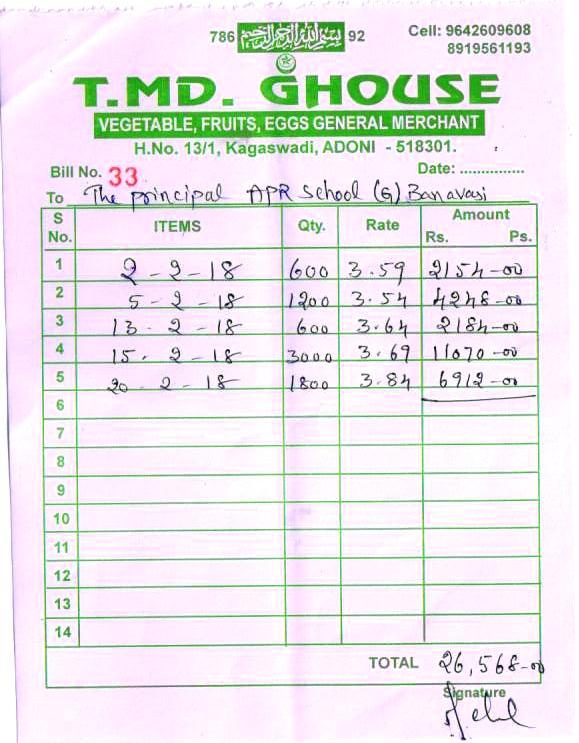 786 بسم الله الرحمن الرحيم 92
Cell: 9642609608
8919561193
T.MD. GHOUSE
VEGETABLE, FRUITS, EGGS GENERAL MERCHANT
H.No. 13/1, Kagaswadi, ADONI - 518301.
Bill No. 33 Date: ...............
To The principal APR School (G) Banavasi
S No. ITEMS Qty. Rate Amount Rs. Ps.
1 2-2-18 600 3.59 2154-00
2 5-2-18 1200 3.54 4248-00
3 13-2-18 600 3.64 2184-00
4 15.2-18 3000 3.69 11070-00
5 20-2-18 1800 3.84 6912-00
6
7
8
9
10
11
12
13
14
TOTAL 26,568-00
Signature